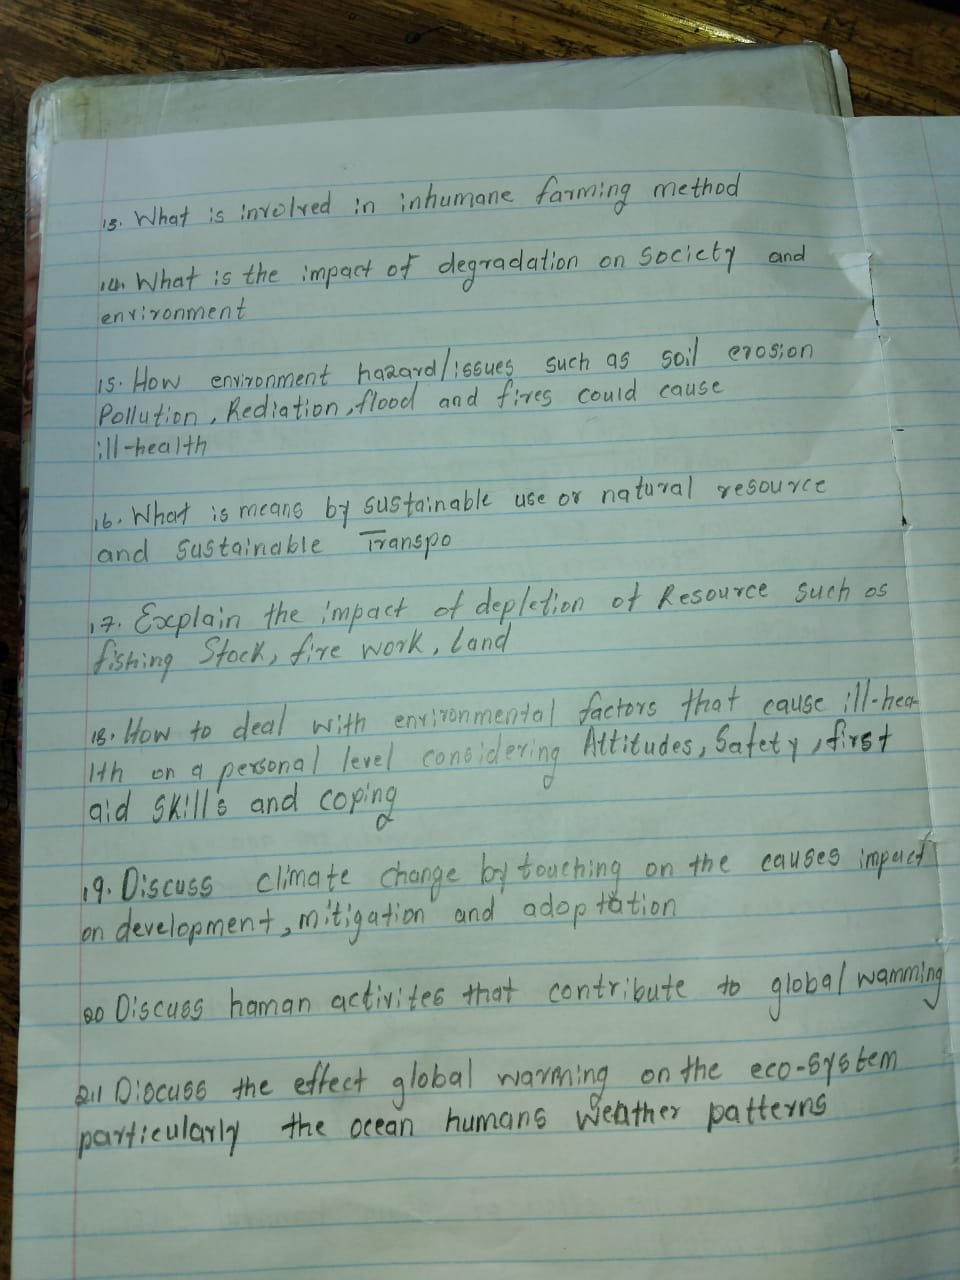 13. What is involved in inhumane farming method
14. What is the impact of degradation on society and
environment
15. How environment hazard/issues such as soil erosion
Pollution, Rediation, flood and fires could cause
ill-health
16. What is means by sustainable use or natural resource
and sustainable Transpo
17. Explain the impact of depletion of Resource such as
fishing Stock, fire work, Land
18. How to deal with environmental factors that cause ill-hea-
lth on a personal level considering Attitudes, Safety, first
aid skills and coping
19. Discuss climate change by touching on the causes impact
on development, mitigation and adoptation
20 Discuss haman activites that contribute to global wamming
21 Discuss the effect global warming on the eco-system
particularly the ocean humans Weather patterns